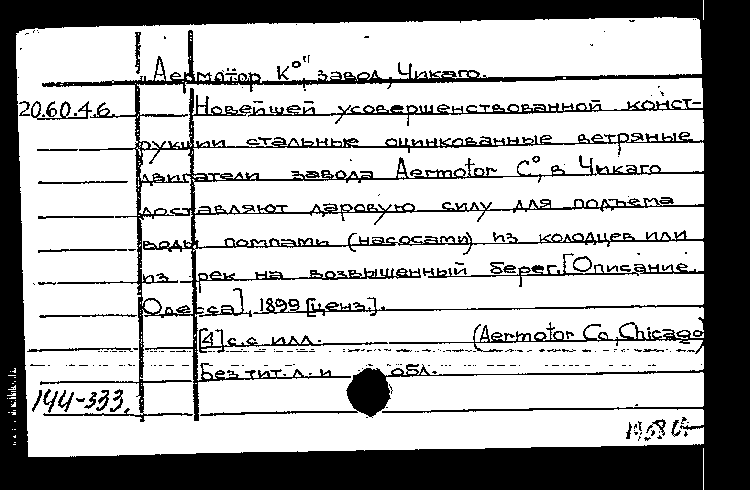 „Аермотор К°", завод, Чикаго.
20.60.4.6. Новейшей усовершенствованной конст-
рукции стальные оцинкованные ветряные
двигатели завода Aermotor C°, в Чикаго
доставляют даровую силу для подъема
воды помпами (насосами) из колодцев или
из рек на возвышенный берег. [Описание.
Одесса], 1899 [ценз.].
[4] с.с илл. (Aermotor Co, Chicago)
Без тит. л. и обл.
144-333.